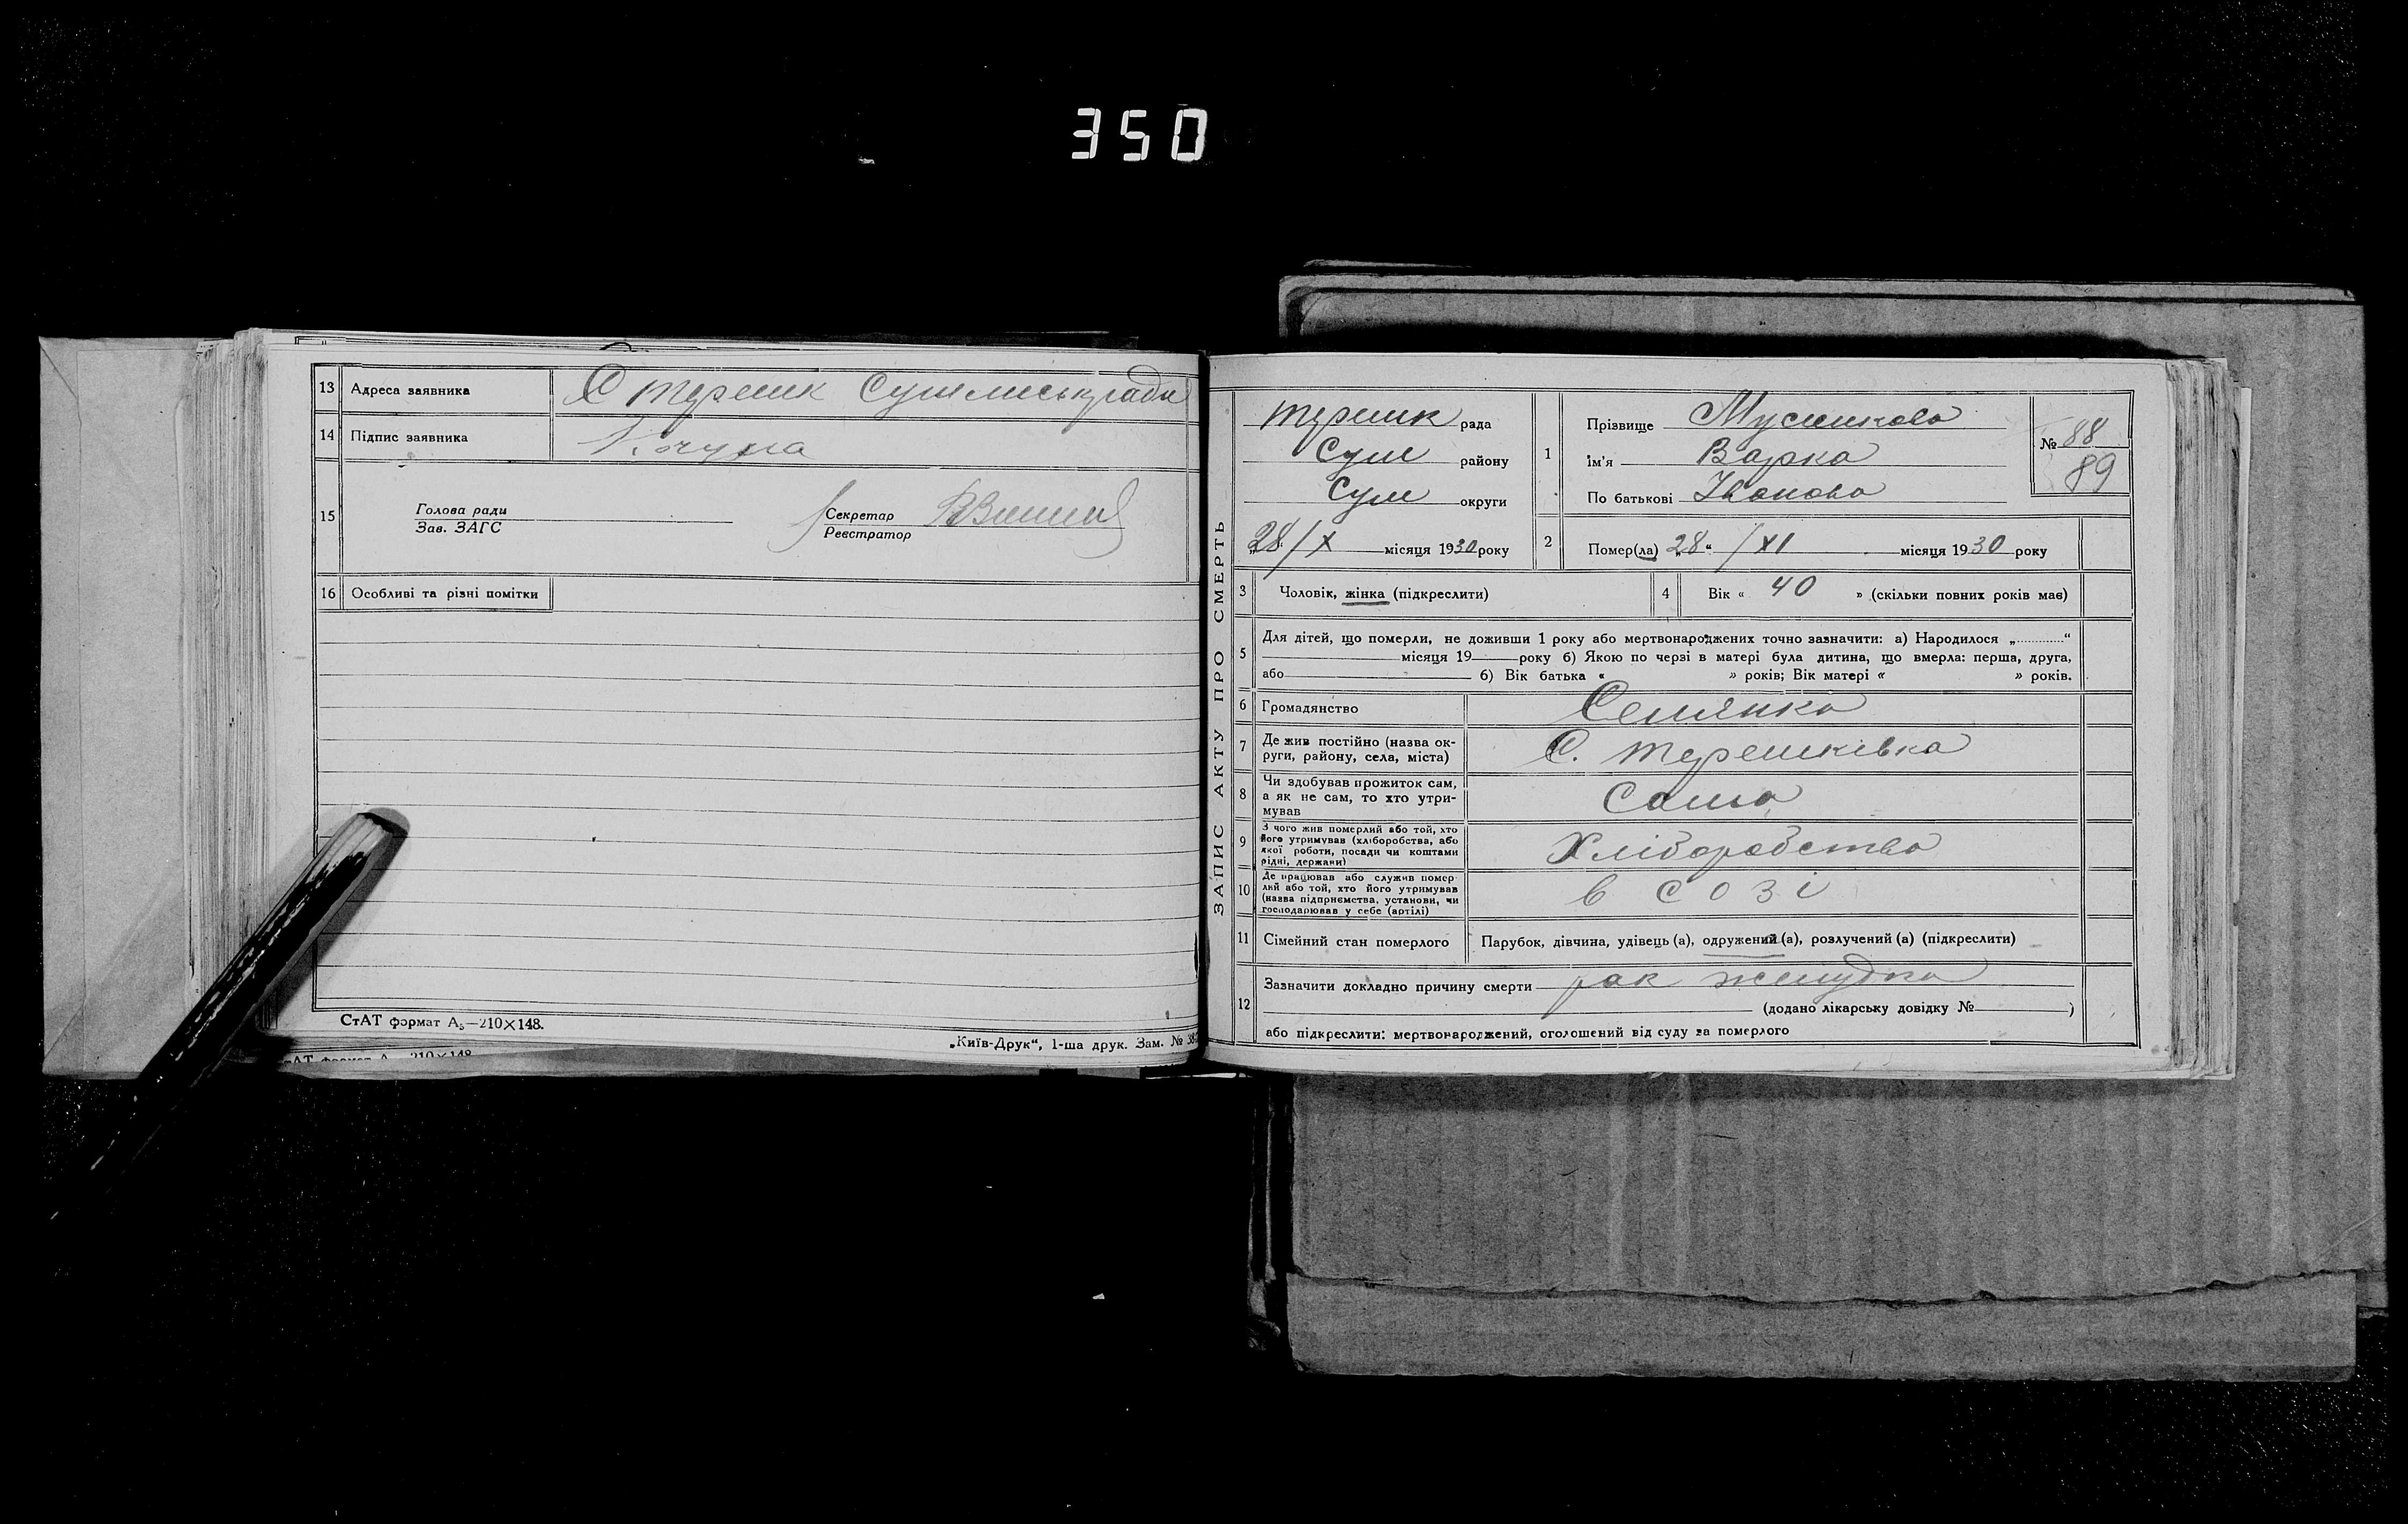 350
13 Адреса заявника С Терешк Суммiськради
14 Підпис заявника
15 Голова ради
Зав. ЗАГС
Секретар
Реєстратор
16 Особливі та різні помітки
СтАТ формат А₅—210×148.
„Київ-Друк“, 1-ша друк. Зам. №
ЗАПИС АКТУ ПРО СМЕРТЬ
Терешк рада
Сум району
Сум округи
„28“/X місяця 1930 року
1 Прізвище
Ім'я Варка
По батькові Іванова
№ 88
89
2 Помер(ла) „28“ /XI місяця 1930 року
3 Чоловік, жінка (підкреслити)
4 Вік « 40 » (скільки повних років має)
5 Для дітей, що померли, не доживши 1 року або мертвонароджених точно зазначити: а) Народилося „............“
місяця 19 року б) Якою по черзі в матері була дитина, що вмерла: перша, друга,
або б) Вік батька « » років; Вік матері « » років.
6 Громадянство Селянка
7 Де жив постійно (назва ок-
руги, району, села, міста) С. Терешківка
8 Чи здобував прожиток сам,
а як не сам, то хто утри-
мував Сама
9 З чого жив померлий або той, хто
його утримував (хліборобства, або
якої роботи, посади чи коштами
рідні, держави) Хліборобство
10 Де працював або служив помер-
лий або той, хто його утримував
(назва підприємства, установи, чи
господарював у себе (артілі) в созі
11 Сімейний стан померлого Парубок, дівчина, удівець (а), одружений (а), розлучений (а) (підкреслити)
12 Зазначити докладно причину смерти рак желудка
(додано лікарську довідку № )
або підкреслити: мертвонароджений, оголошений від суду за померлого